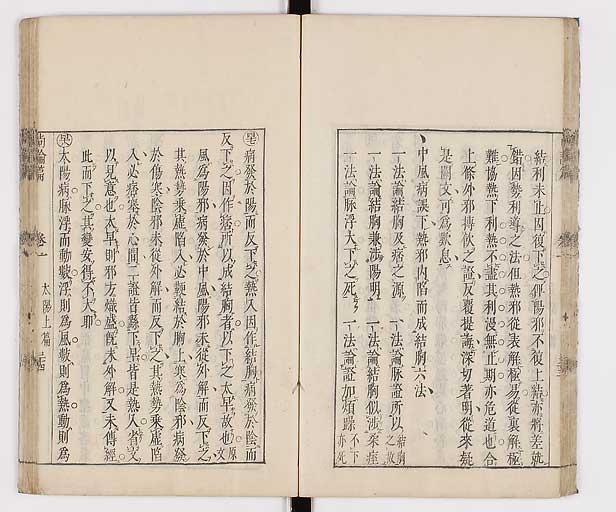 結利未止因復下之俾陽邪不復上結亦將差就
錯因勢利導之法但熱邪從表解極易從裏解極
難協熱下利熱不盡其利漫無止期亦危道也合
上條外邪摶飲之證反覆提誨深切著明從來疑
是闕文可爲歎息
中風病誤下熱邪內陷而成結胸六法
一法論結胸及痞之源 一法論脈證所以結胸之故
一法論結胸兼涉陽明 一法論結胸似涉柔痓
一法論脈浮大下之死 一法論證加煩躁不下亦死
病發於陽而反下之熱入因作結胸病發於陰而
反下之因作痞所以成結胸者以下之太早故也原文
風爲陽邪病發於中風陽邪未從外解而反下之
其熱勢乘虛陷入必鞕結於胸上寒爲陰邪病發
於傷寒陰邪未從外解而反下之其熱勢乘虛陷
入必痞塞於心間二證皆由下早皆是熱入省文
以見意也太早則邪方熾盛旣未外解又未傳經
此而下之其變安得不大耶
太陽病脈浮而動數浮則爲風數則爲熱動則爲
尚論篇 卷一 太陽上篇